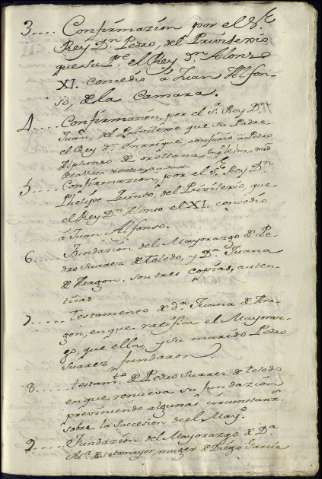 3.... Confirmazion por el S.r
Rey D.n Pedro del Privilexio
que su P.e el Rey D.n Alonso
XI. concedio a Juan Alfon-
so, de la Camara.
4.... Confirmazion, por el S.r Rey D.n
Juan, del Privilexio que su Padre
el Rey D.n Enrrique confirio a Pero
Alfonso de
5.... Confirmazion, por el S.r Rey D.n
Phelipe Quinto, del Privilexio, que
el Rey D.n Alonso el XI. concedio
a Juan Alfonso.
6. Fundazion del Mayorazgo de Pe-
dro Suarez de Toledo, y D.a Juana
de Aragon, son tres copias, auten-
ticas
7.... Testamento de D.a Juana de Ara-
gon, en que ratifica el Mayoraz-
go, que ella, y su marido Pedro
Suarez fundaron
8.... Testam.to de Pedro Suarez de Toledo
en que renueva su fundazion
previniendo algunas circunstanz.s
sobre la succesion de el May.o
9... Fundazion del Mayorazgo de D.a
de Sotomayor, muger de Diego Garcia